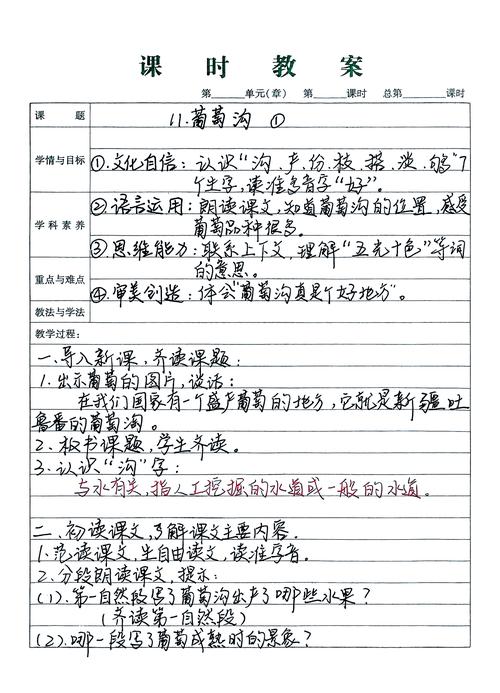 课 时 教 案
第____单元(章) 第____课时 总第____课时
课 题
11.葡萄沟 ①
学情与目标
①.文化自信:认识“沟、产、份、枝、搭、淡、够”7
个生字,读准多音字“好”。
学科素养
②.语言运用:朗读课文,知道葡萄沟的位置,感受
葡萄品种很多。
③.思维能力:联系上下文,理解“五光十色”等词
的意思。
重点与难点
④.审美创造:体会“葡萄沟真是个好地方”。
教法与学法
教学过程:
一.导入新课,齐读课题:
1.出示葡萄的图片,谈话:
在我们国家有一个盛产葡萄的地方,它就是新疆吐
鲁番的葡萄沟。
2.板书课题,学生齐读。
3.认识“沟”字:
与水有关,指人工挖掘的水道或一般的水道。
二.初读课文,了解课文主要内容.
1.范读课文,生自由读文,读准字音。
2.分段朗读课文,提示:
(1).第一自然段写了葡萄沟出产了哪些水果?
(齐读第一自然段)
(2).哪一段写了葡萄成熟时的景象?